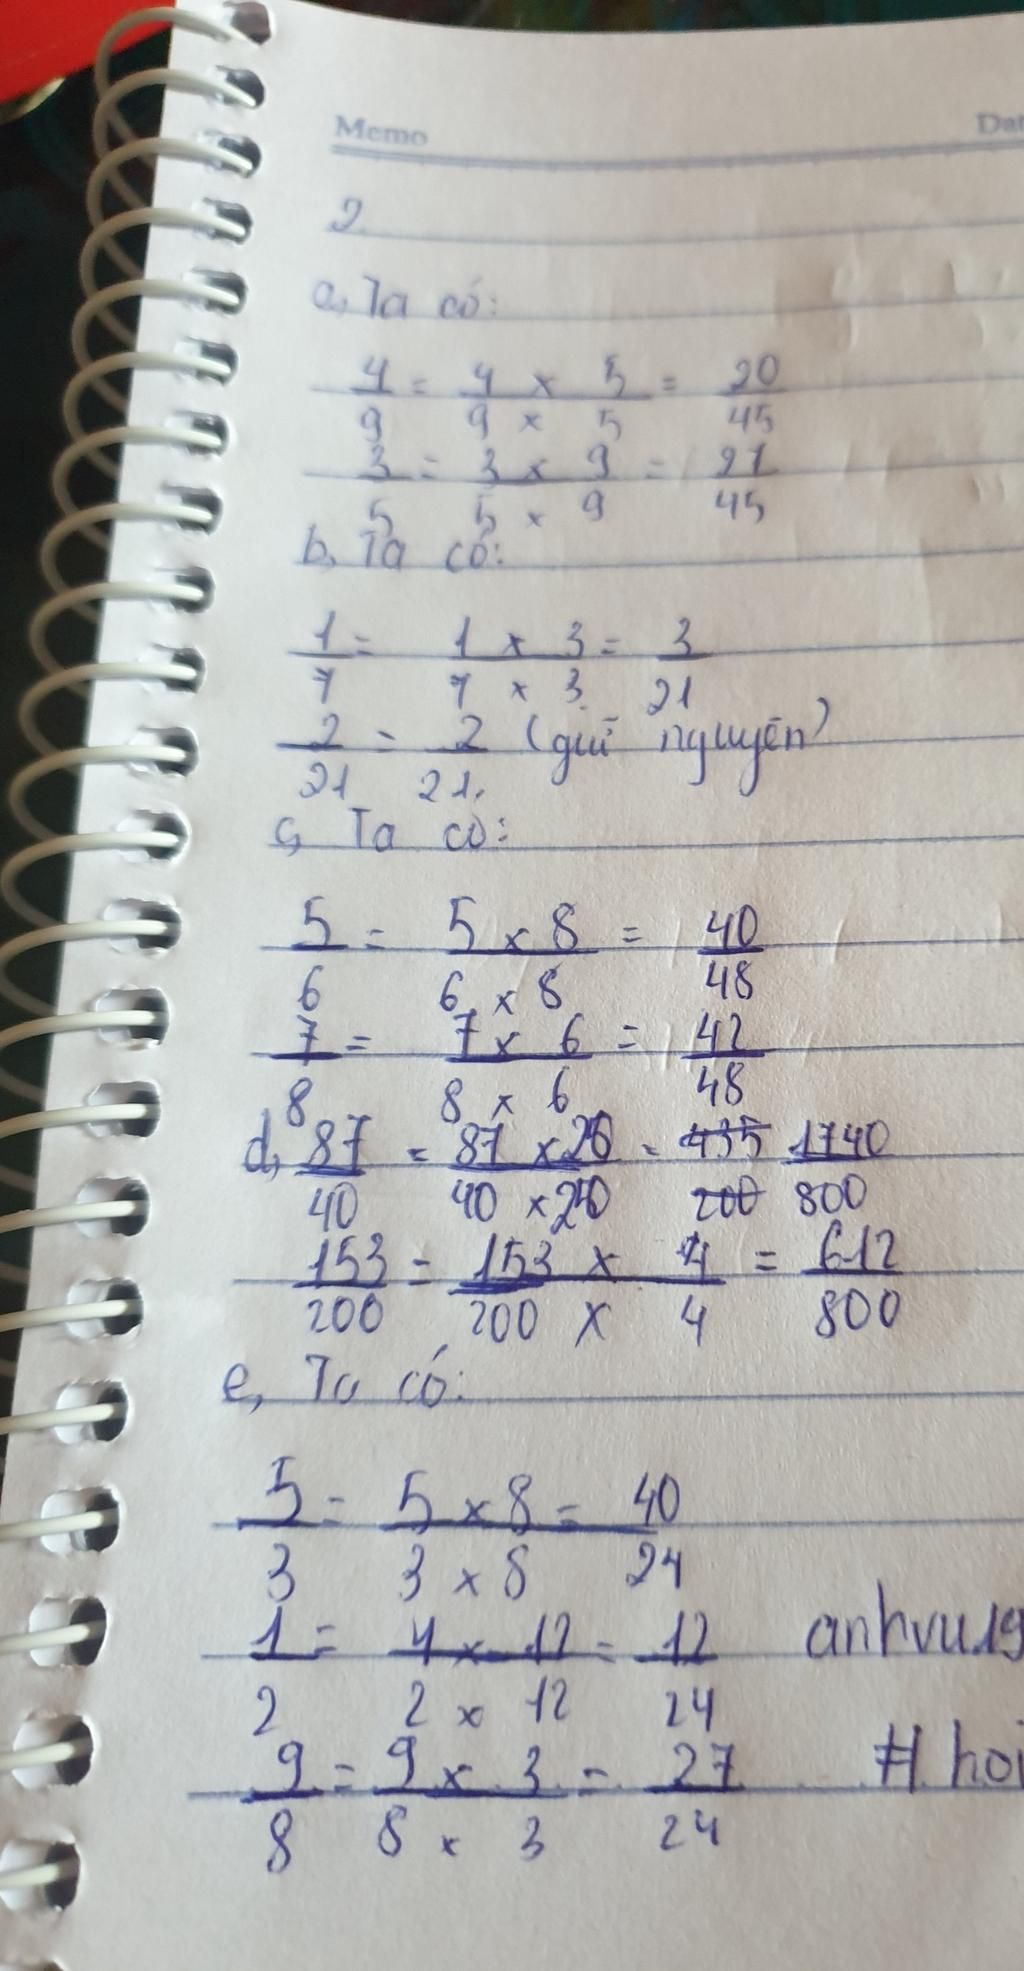 Memo
2
a, Ta có:
4/9 = 4 x 5 / 9 x 5 = 20/45
3/5 = 3 x 9 / 5 x 9 = 27/45
b, Ta có:
1/7 = 1 x 3 / 7 x 3 = 3/21
2/21 = 2/21. (giữ nguyên)
c, Ta có:
5/6 = 5 x 8 / 6 x 8 = 40/48
7/8 = 7 x 6 / 8 x 6 = 42/48
d, 87/40 = 87 x 20 / 40 x 20 = 435/200 1740/800
153/200 = 153 x 4 / 200 x 4 = 612/800
e, Ta có:
5/3 = 5 x 8 / 3 x 8 = 40/24
1/2 = 1 x 12 / 2 x 12 = 12/24 anhvu19
9/8 = 9 x 3 / 8 x 3 = 27/24 # hoi